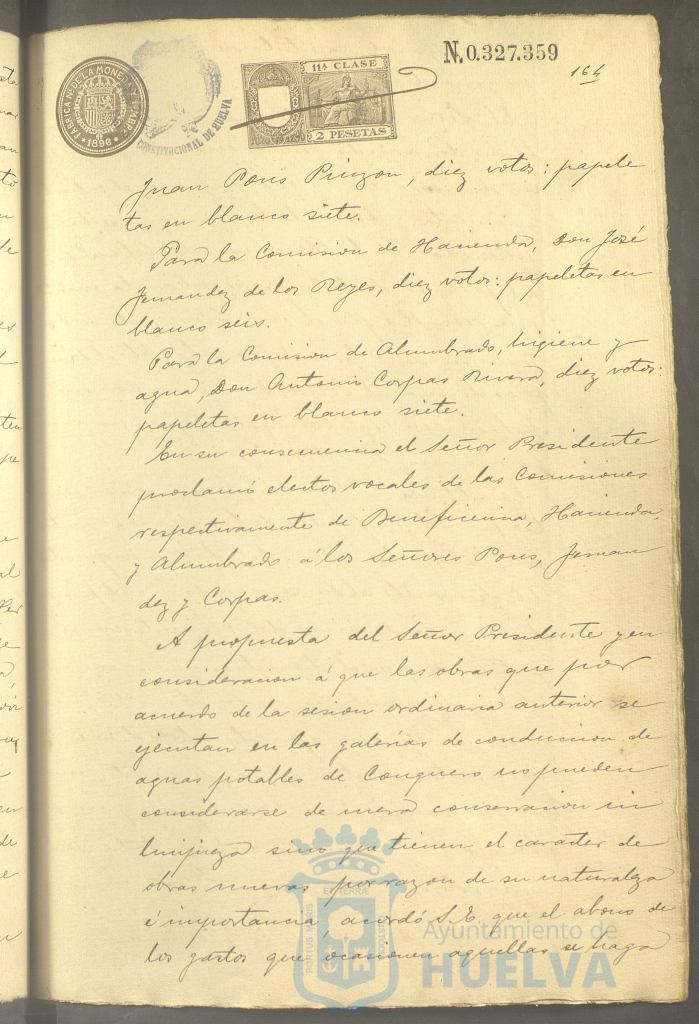 N. 0.327.359
164
FABRICA N. DE LA MONEDA Y TIMBRE
1896
CONSTITUCIONAL DE HUELVA
11ª CLASE
2 PESETAS
Juan Pons Pinzon, diez votos: papele
tas en blanco siete.
Para la Comision de Hacienda, Don José
Fernandez de los Reyes, diez votos: papeletas en
blanco seis.
Para la Comision de Alumbrado, higiene y
agua, Don Antonio Corpas Rivera, diez votos:
papeletas en blanco siete.
En su consecuencia el Señor Presidente
proclamó electos vocales de las Comisiones
respectivamente de Beneficencia, Hacienda,
y Alumbrado á los Señores Pons, Fernan
dez y Corpas.
A propuesta del Señor Presidente y en
consideracion á que las obras que por
acuerdo de la sesion ordinaria anterior se
ejecutan en las galerías de conduccion de
aguas potables de Conquero no pueden
considerarse de mera conservacion ni
limpieza sino que tienen el caracter de
obras nuevas por razon de su naturaleza
é importancia, acordó S.E. que el abono de
los gastos que ocasionen aquellas se haga
PORTUS MARIS
ET TERRAE
CUSTODIA
Ayuntamiento de
HUELVA